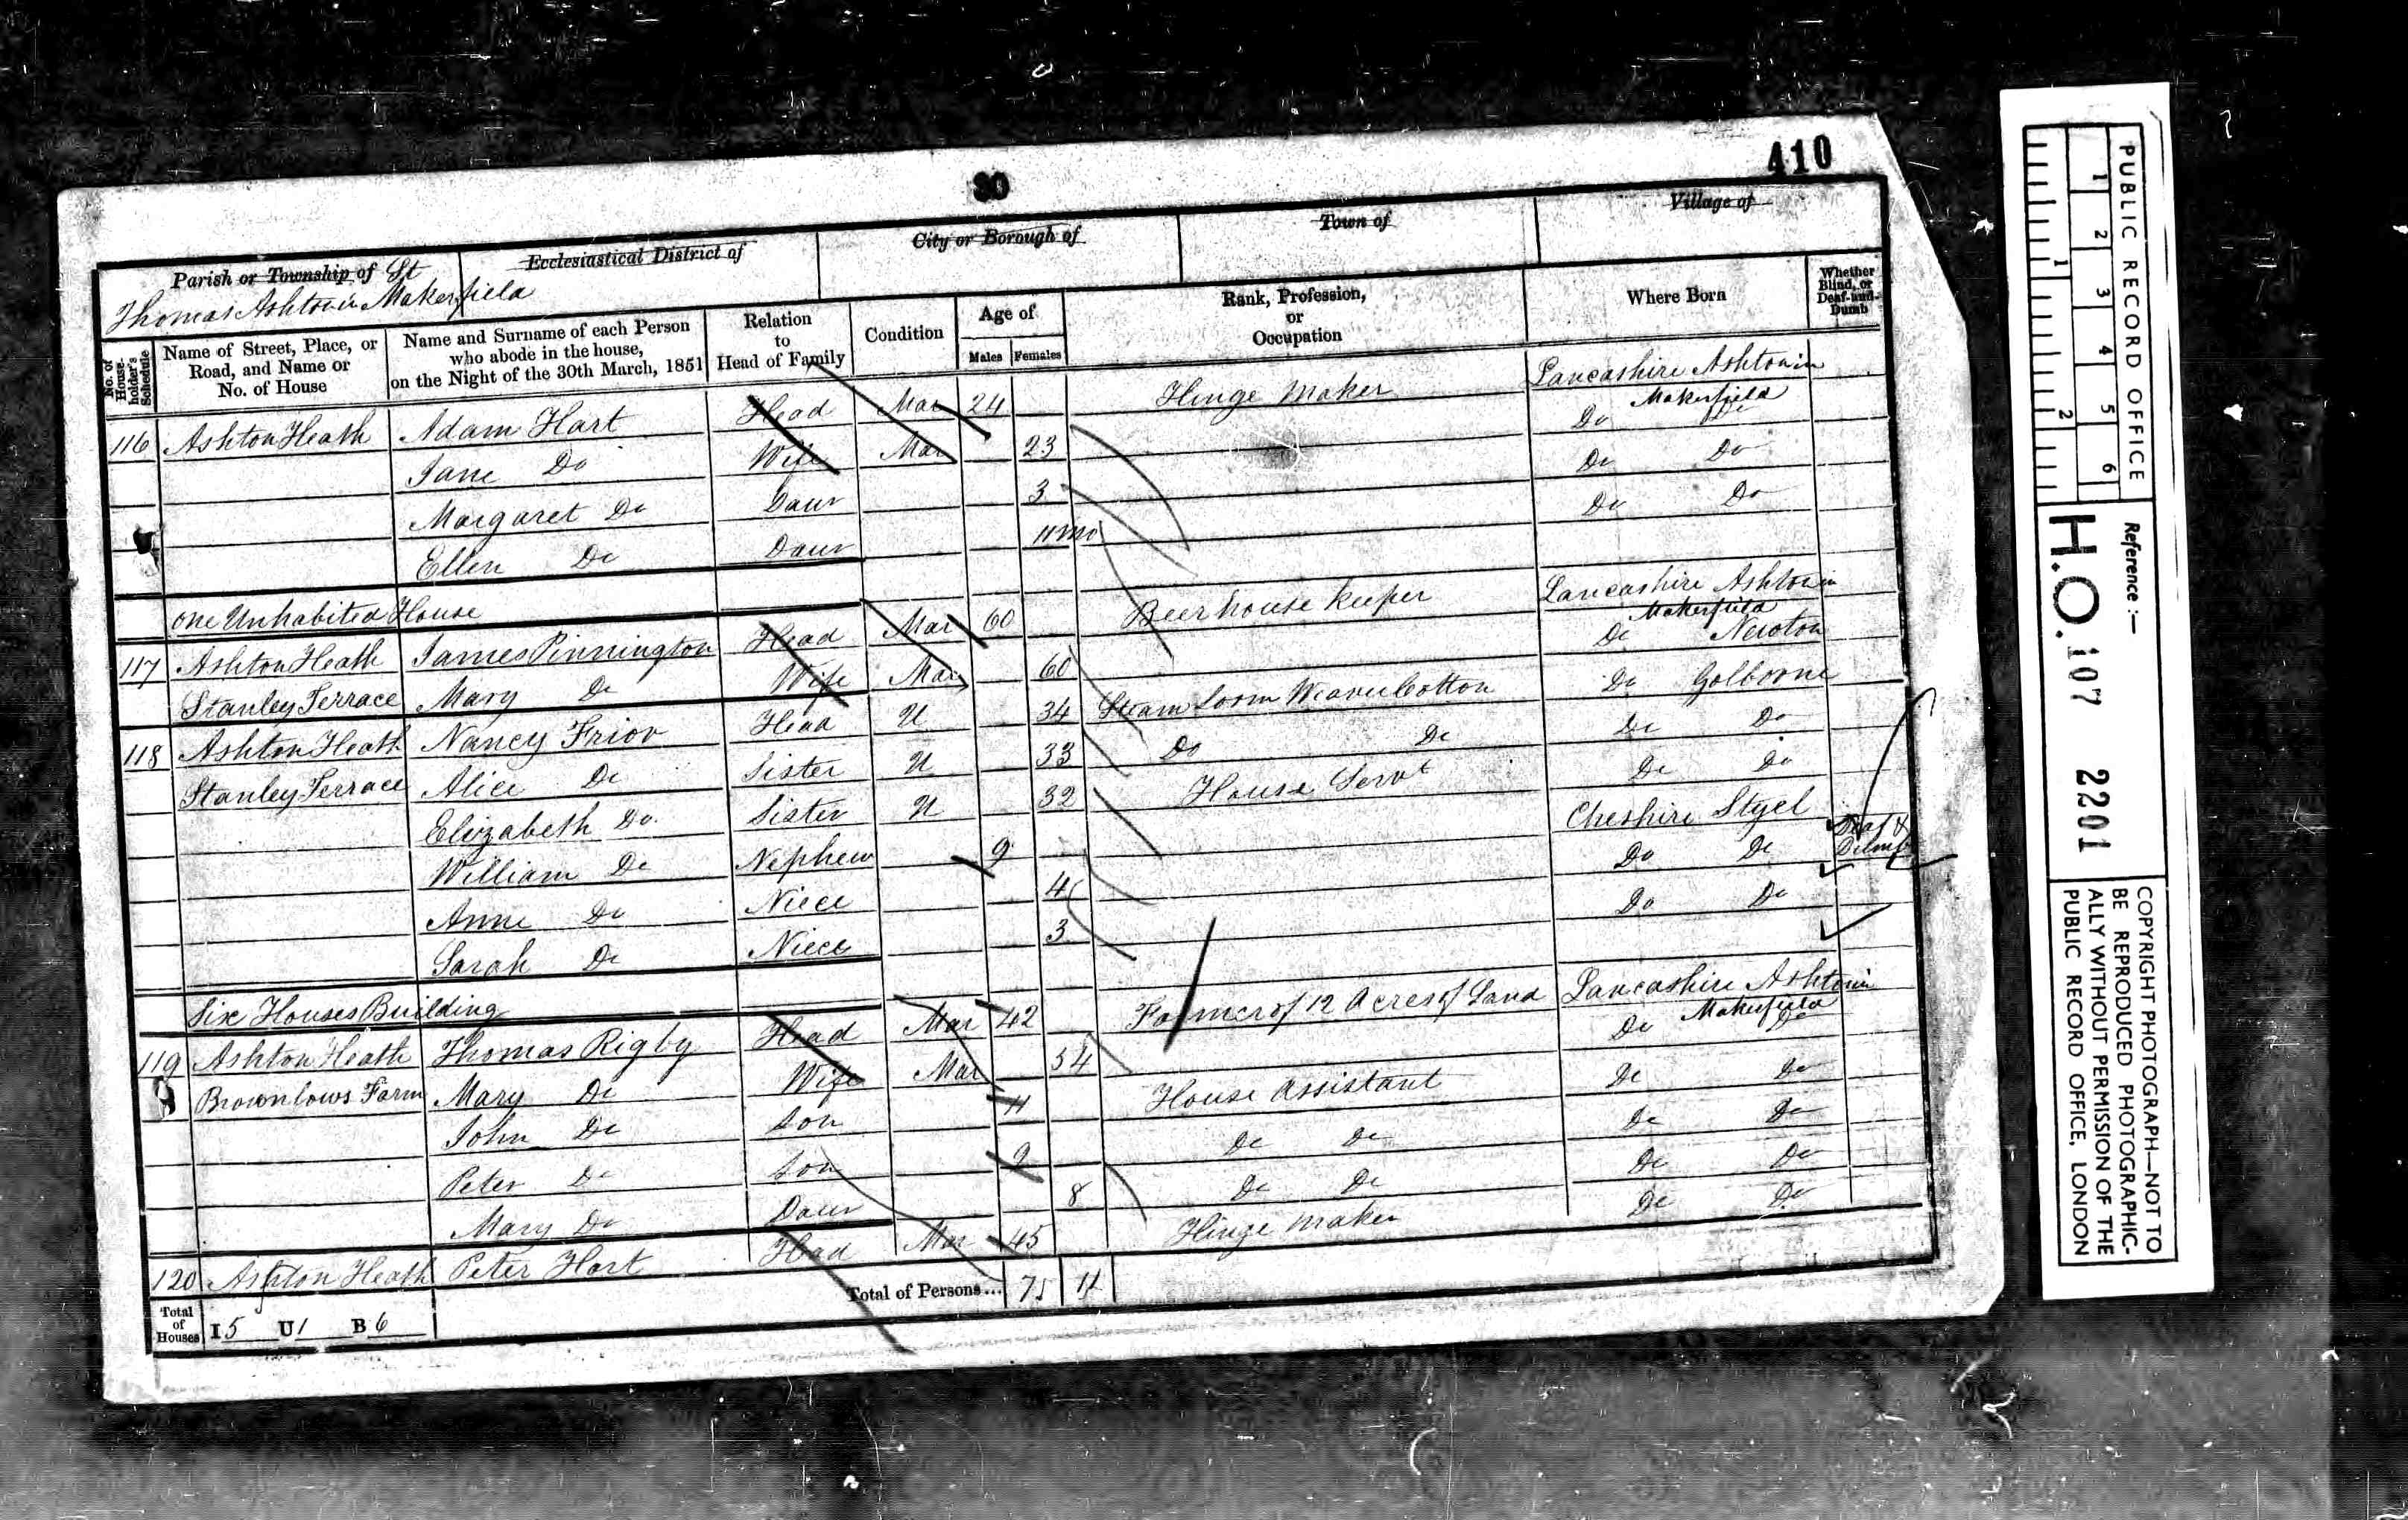 30
410
Parish or Township of St
Thomas Ashton in Makerfield
Ecclesiastical District of
City or Borough of
Town of
Village of
No. of House-holder's Schedule
Name of Street, Place, or Road, and Name or No. of House
Name and Surname of each Person who abode in the house, on the Night of the 30th March, 1851
Relation to Head of Family
Condition
Age of
Males Females
Rank, Profession, or Occupation
Where Born
Whether Blind, or Deaf-and-Dumb
116 Ashton Heath Adam Hart Head Mar 24 Hinge Maker Lancashire Ashton in Makerfield
Jane Do Wife Mar 23 Do Do
Margaret Do Daur 3 Do Do
Ellen Do Daur 11 mo Do Do
One Unhabited House
117 Ashton Heath James Pinnington Head Mar 60 Beerhouse Keeper Lancashire Ashton in Makerfield
Stanley Terrace Mary Do Wife Mar 60 Do Newton
118 Ashton Heath Nancy Frior Head U 34 Steam Loom Weaver Cotton Do Golborne
Stanley Terrace Alice Do Sister U 33 Do Do Do Do
Elizabeth Do Sister U 32 House Servt Do Do
William Do Nephew 9 Cheshire Styel Deaf & Dumb
Anne Do Niece 4 Do Do
Sarah Do Niece 3 Do Do
Six Houses Building
119 Ashton Heath Thomas Rigby Head Mar 42 Farmer of 12 Acres of Land Lancashire Ashton in Makerfield
Brownlows Farm Mary Do Wife Mar 34 Do Do
John Do Son 11 House Assistant Do Do
Peter Do Son 9 Do Do Do Do
Mary Do Daur 8 Do Do Do Do
120 Ashton Heath Peter Hart Head Mar 45 Hinge Maker Do Do
Total of Houses I 5 U 1 B 6
Total of Persons... 7 11
PUBLIC RECORD OFFICE
1 2 3 4 5 6
1 2
Reference :—
H.O. 107 2201
COPYRIGHT PHOTOGRAPH—NOT TO
BE REPRODUCED PHOTOGRAPHIC-
ALLY WITHOUT PERMISSION OF THE
PUBLIC RECORD OFFICE, LONDON